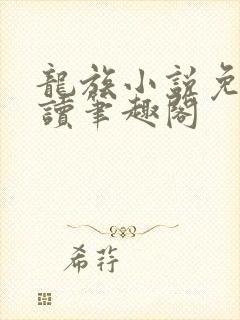 龍族小說免
讀筆趣閣
希荇